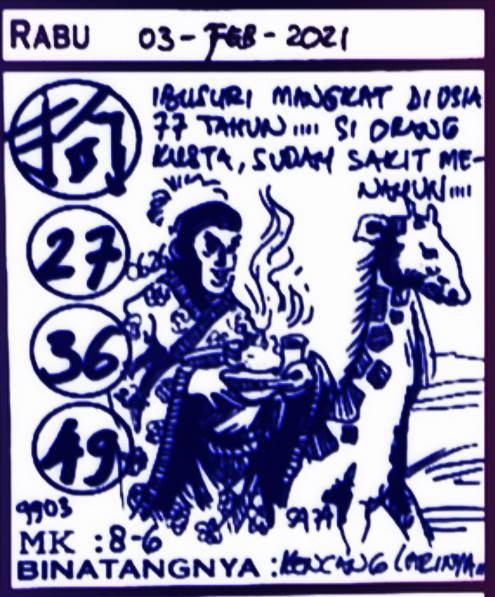 RABU 03-FEB-2021
IBUSURI MANGKAT DI USIA
77 TAHUN.... SI ORANG
KUSTA, SUDAH SAKIT ME-
NAHUN....
狗
27
36
49
9903
MK : 8-6
BINATANGNYA : KENCANG LARINYA..